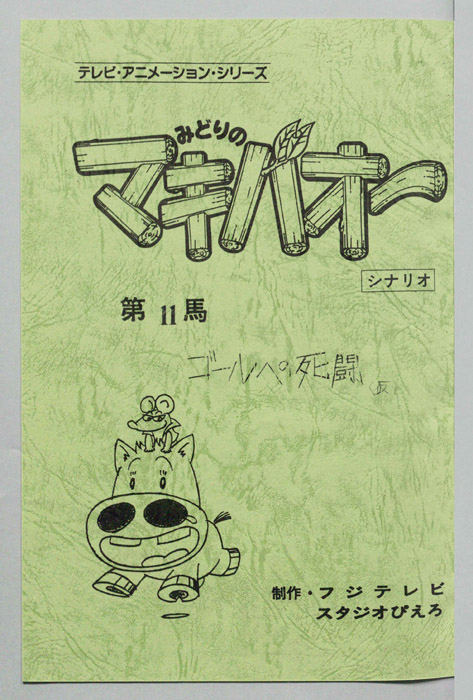 テレビ・アニメーション・シリーズ
みどりの
マキバオー
シナリオ
第11馬
ゴールへの死闘
制作・フジテレビ
スタジオぴえろ